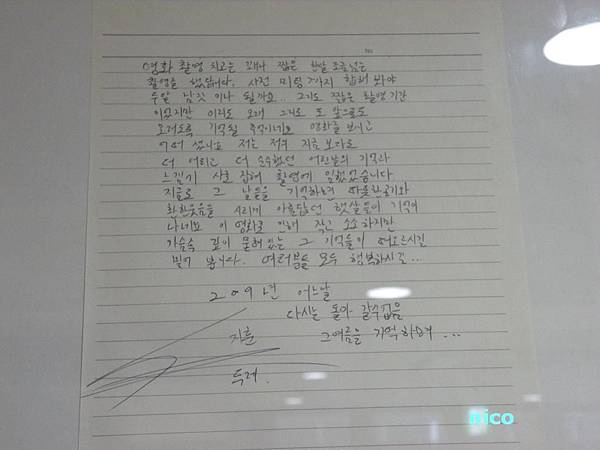 영화 촬영 치고는 꽤나 짧은 한달 조금넘는
촬영을 했습니다. 사전 미팅 까지 합해 봐야
두달 남짓 이나 될까요.. 그리도 짧은 촬영기간
이었지만 이리도 오래 그리고 또 앞으로도
오래도록 기억될 추억이네요 영화를 보시고
어떠 셨나요 저는 정우 지금 보다도
더 어리고 더 순수했던 어린날의 기억과
느낌기 사로 잡혀 촬영에 임했었습니다
지금도 그 날들을 기억하면
환한웃음들 시리게 아름답던 햇살들이 기억이
나네요 이 영화로 인해 작고 소소하지만
가슴속 깊이 묻혀있는 그 기억들이 떠오르시길
빌어 봅니다. 여러분들 모두 행복하시길...
2009년 어느날
다시는 돌아 갈수없을
지훈 그여름을 기억하며 ...
드려.
nico